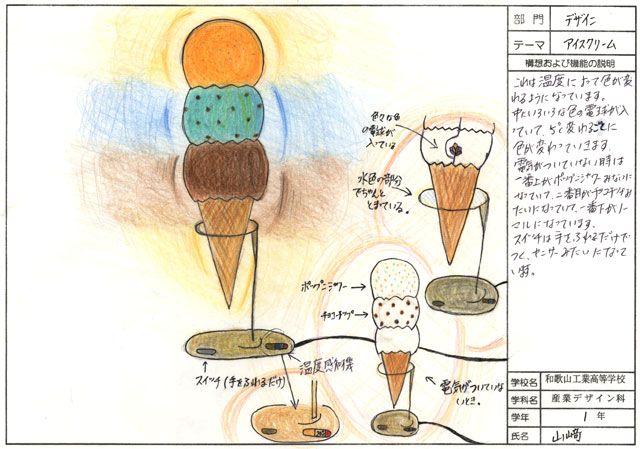 部門 デザイン
テーマ アイスクリーム
構想および機能の説明
これは温度によって色が変
わるようになっています。
中にいろいろな色の電球が入
っていて、5°と変わるごとに
色が変わっていきます。
電気がついていない時は
一番上がポップンシャワーみたいに
なっていて、二番目がチョコチップみ
たいになっていて、一番下がノー
マルになっています。
スイッチは手をふれるだけで
つく、センサーみたいになって
い
色々な色
の電球が
入っている
水色の部分
でちゃんと
とまっている。
ポップンシャワー
チョコチップ
温度感知機
スイッチ(手をふれるだけ)
電気がついていな
いとき。
学校名 和歌山工業高等学校
学科名 産業デザイン科
学年 1年
氏名 山崎